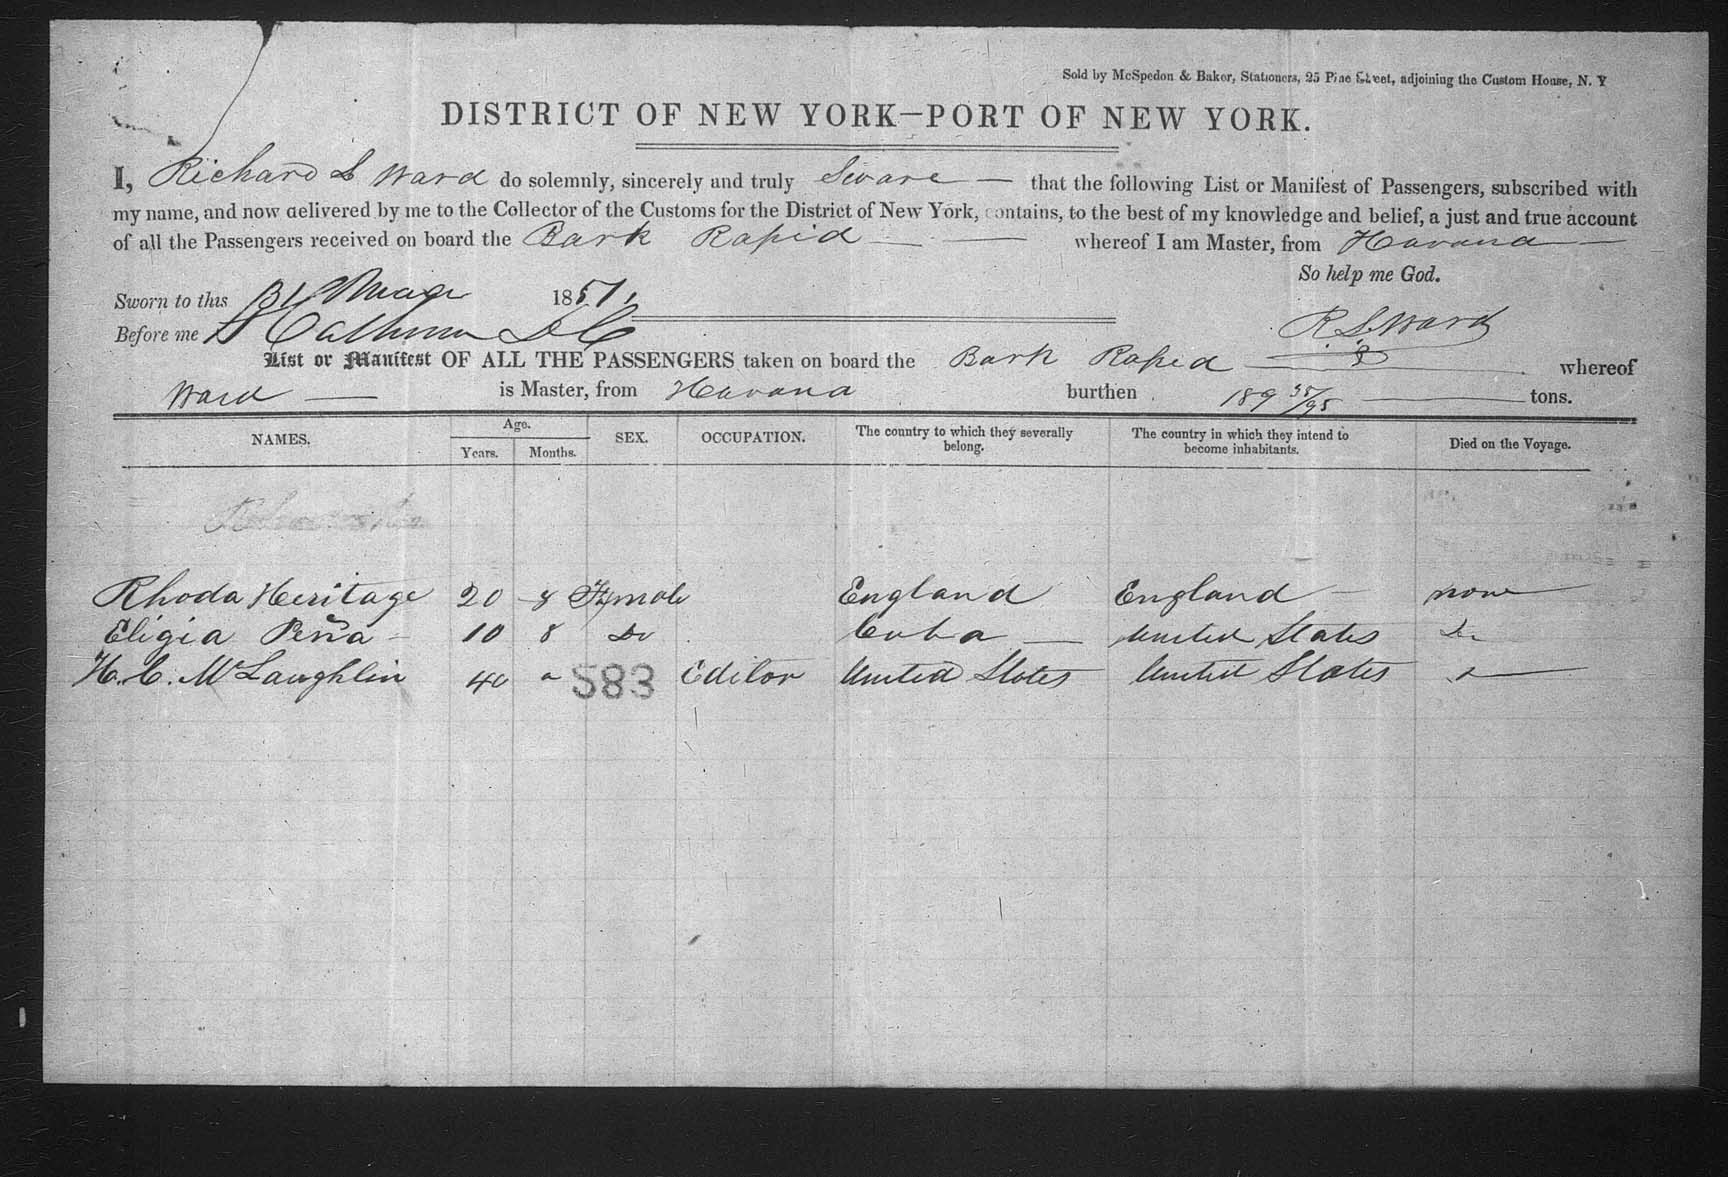 Sold by McSpedon & Baker, Stationers, 25 Pine Street, adjoining the Custom House, N. Y
DISTRICT OF NEW YORK—PORT OF NEW YORK.
I, Richard S Ward do solemnly, sincerely and truly Sware — that the following List or Manifest of Passengers, subscribed with
my name, and now delivered by me to the Collector of the Customs for the District of New York, contains, to the best of my knowledge and belief, a just and true account
of all the Passengers received on board the Bark Rapid — — whereof I am Master, from Havana —
So help me God.
Sworn to this 1851
R. S. Ward
Before me
List or Manifest OF ALL THE PASSENGERS taken on board the Bark Rapid — whereof
Ward — is Master, from Havana burthen 189 35/95 — tons.
NAMES. Age. SEX. OCCUPATION. The country to which they severally belong. The country in which they intend to become inhabitants. Died on the Voyage.
Years. Months.
Rhoda Heritage 20 8 Female England England — none
Eligia Peña 10 8 Do Cuba — United States Do
H. C. McLaughlin 40 583 Editor United States United States